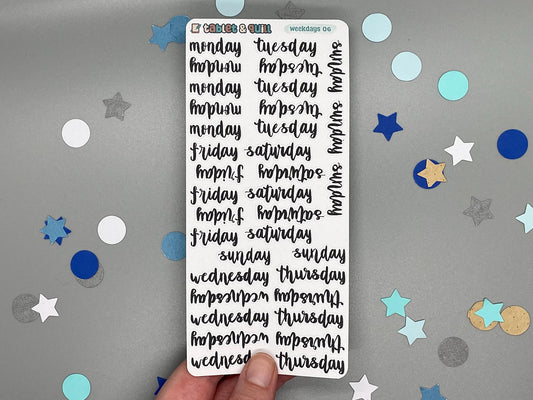 tablet & quill weekdays 06
monday tuesday
monday tuesday
monday tuesday
monday tuesday
monday tuesday
sunday
sunday
sunday
friday saturday
friday saturday
friday saturday
friday saturday
friday saturday
sunday sunday
wednesday thursday
wednesday thursday
wednesday thursday
wednesday thursday
wednesday thursday